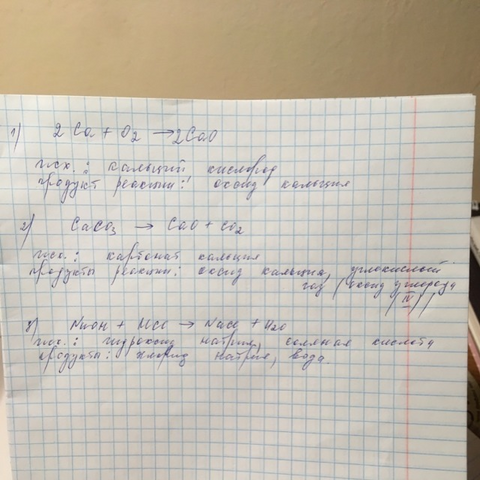 1) 2Ca + O2 → 2CaO
исх.: кальций кислород
продукт реакции: оксид кальция
2) CaCO3 → CaO + CO2
исх.: карбонат кальция
продукты реакции: оксид кальция, углекислый
газ (оксид углерода
(IV))
3) NaOH + HCl → NaCl + H2O
исх.: гидроксид натрия, соляная кислота
продукты: хлорид натрия, вода